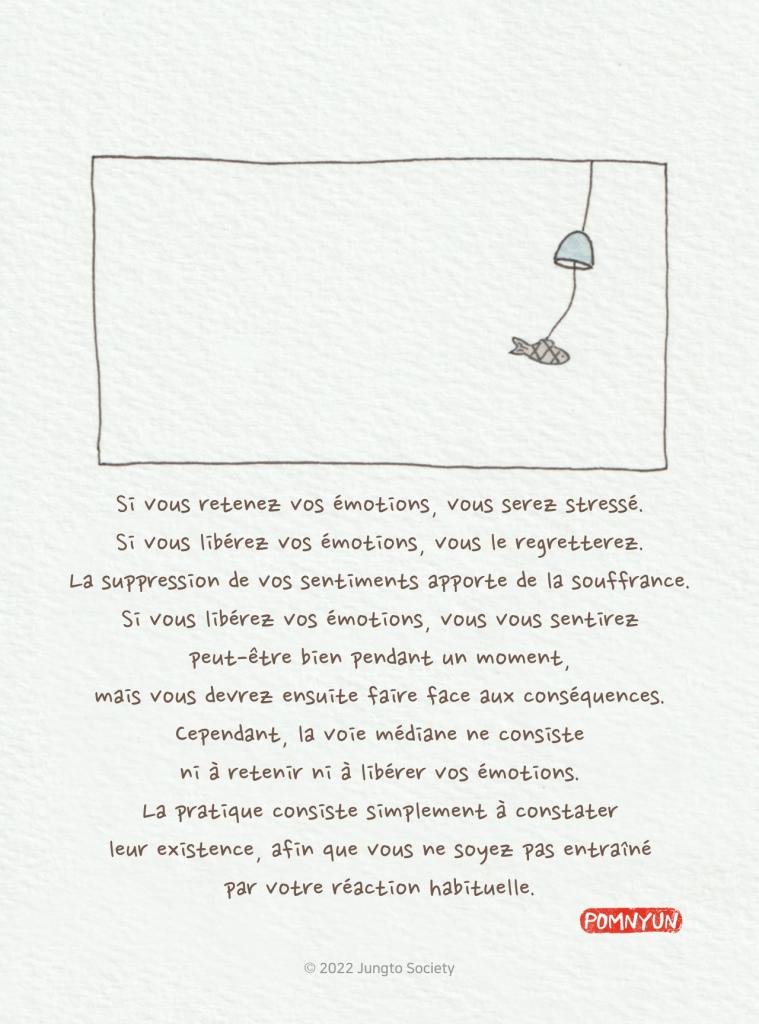 Si vous retenez vos émotions, vous serez stressé.
Si vous libérez vos émotions, vous le regretterez.
La suppression de vos sentiments apporte de la souffrance.
Si vous libérez vos émotions, vous vous sentirez
peut-être bien pendant un moment,
mais vous devrez ensuite faire face aux conséquences.
Cependant, la voie médiane ne consiste
ni à retenir ni à libérer vos émotions.
La pratique consiste simplement à constater
leur existence, afin que vous ne soyez pas entraîné
par votre réaction habituelle.
POMNYUN
© 2022 Jungto Society